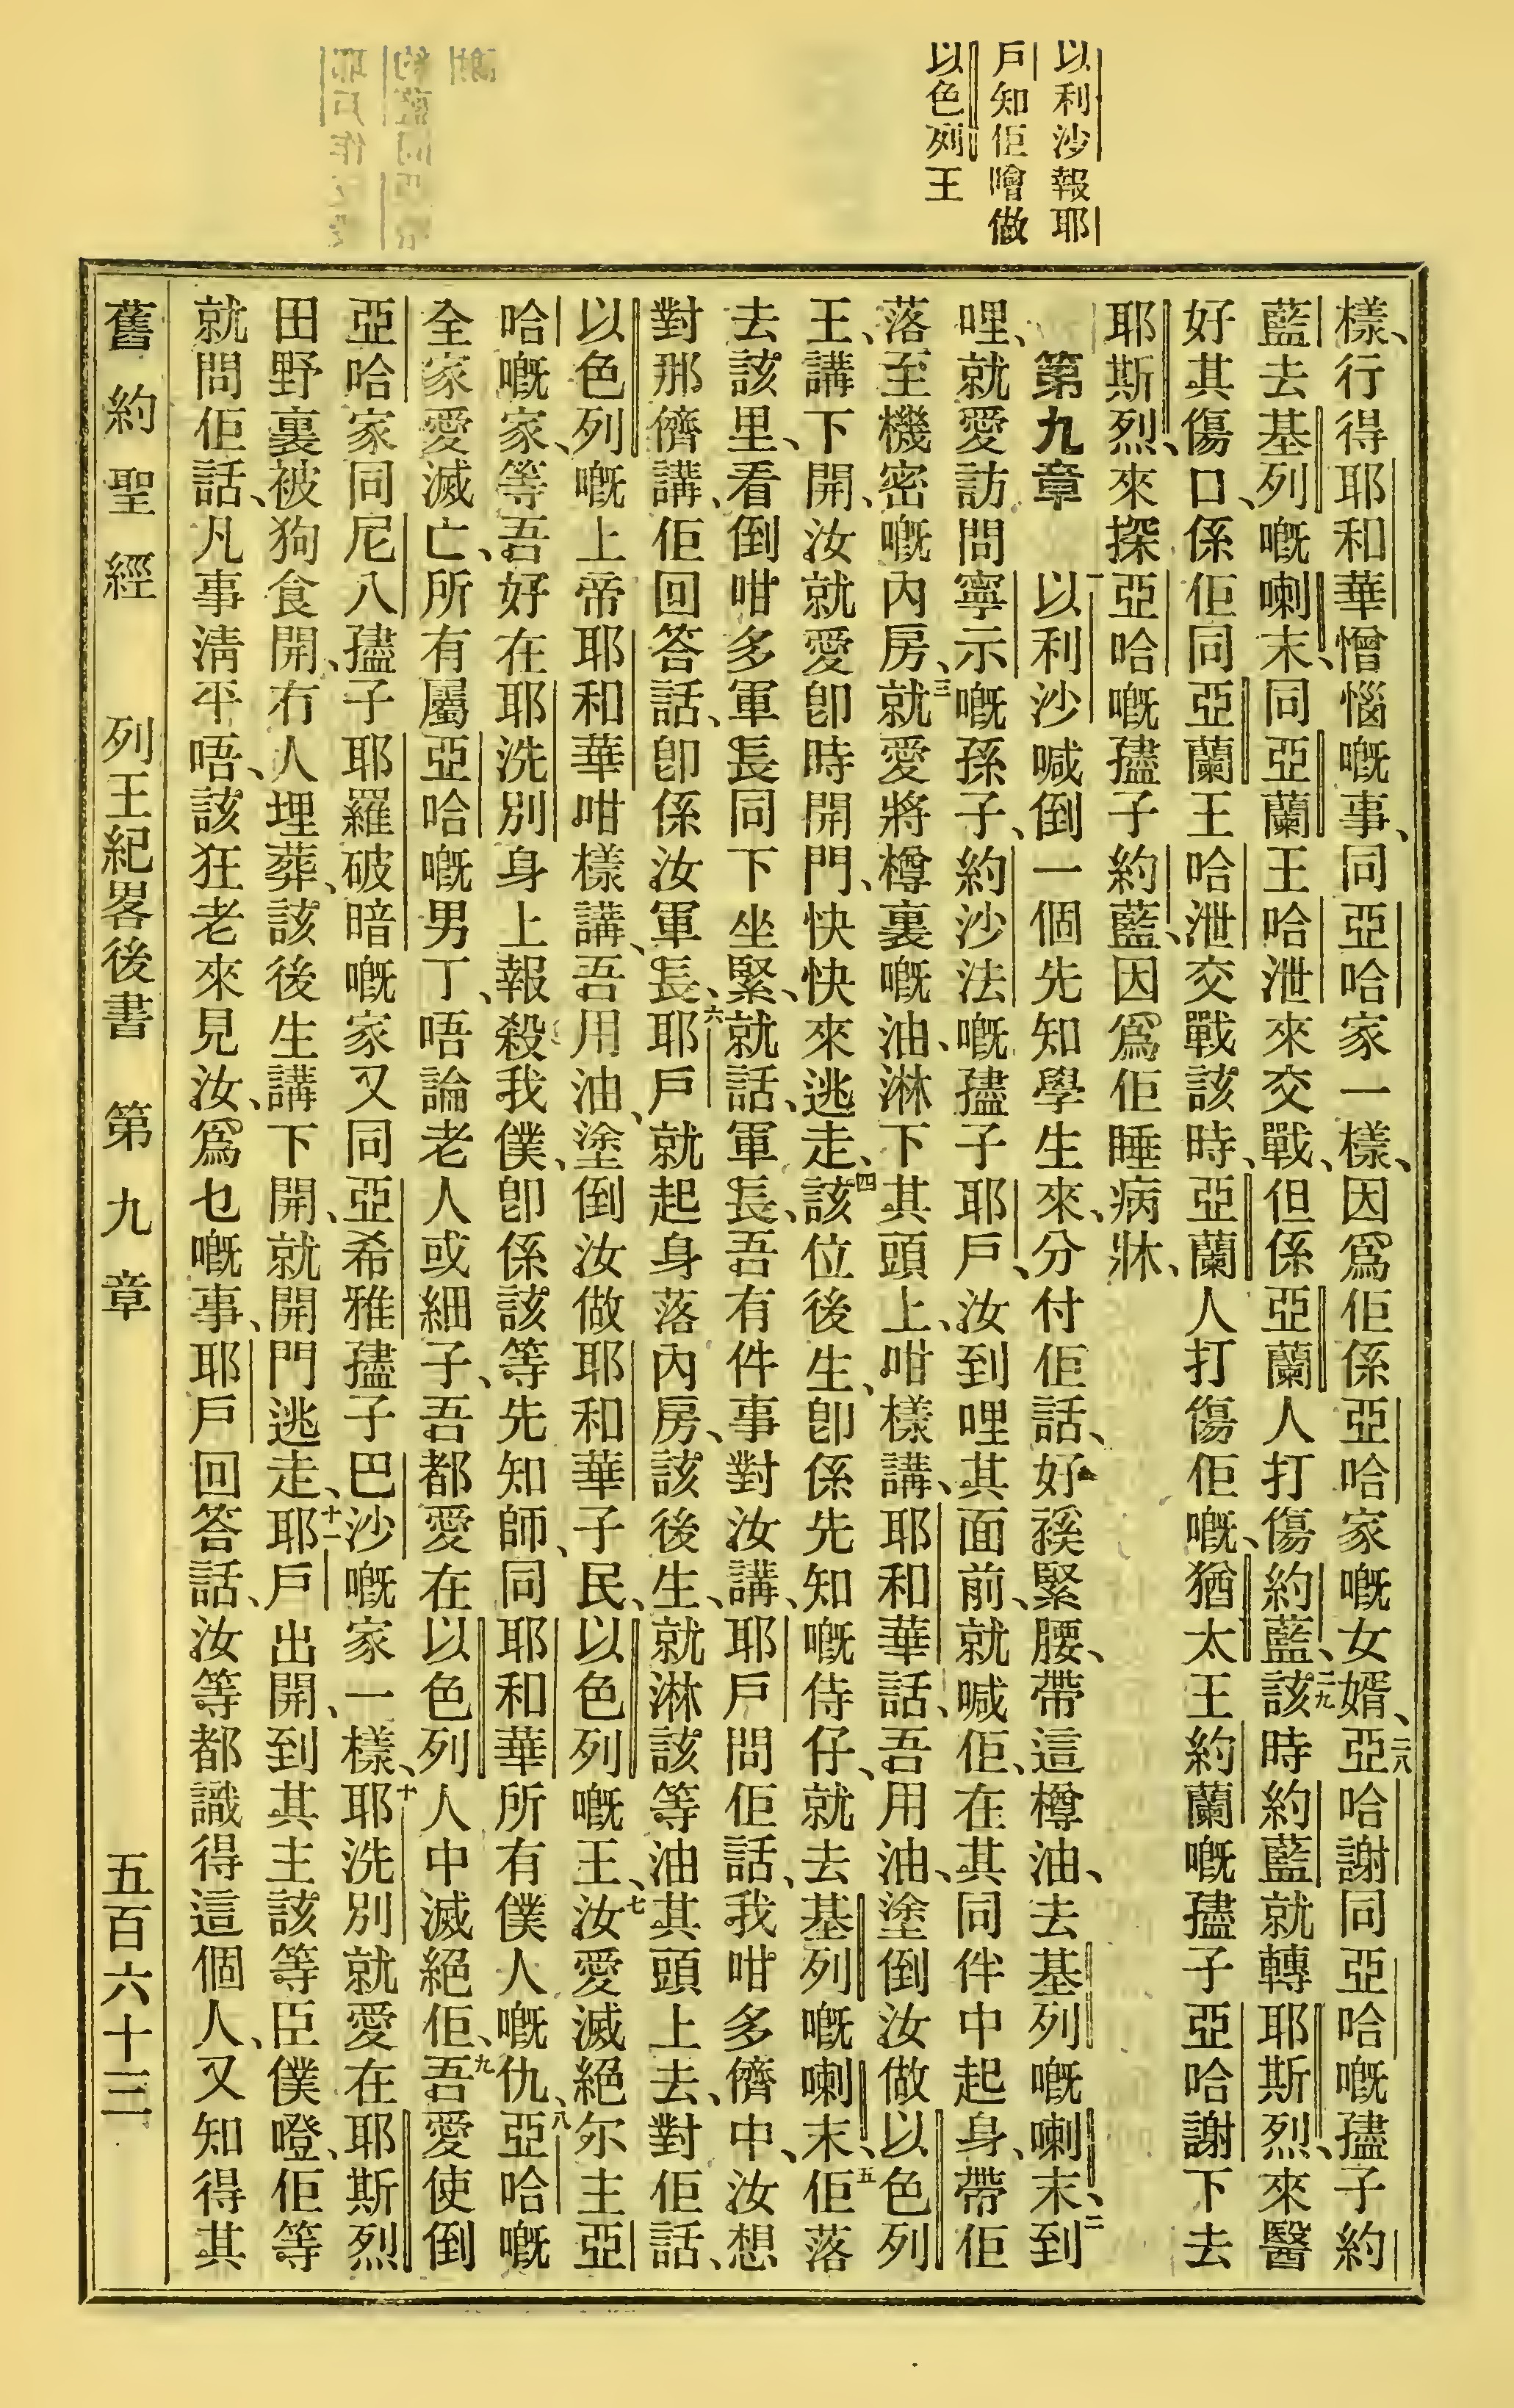 以利沙報耶
戶知佢噲做
以色列王
樣、行得耶和華憎惱嘅事、同亞哈家一樣、因爲佢係亞哈家嘅女婿、二八亞哈謝同亞哈嘅𡥧子約
藍去基列嘅喇末、同亞蘭王哈泄來交戰、但係亞蘭人打傷約藍、二九該時約藍就轉耶斯烈、來醫
好其傷口、係佢同亞蘭王哈泄交戰該時、亞蘭人打傷佢嘅、猶太王約蘭嘅𡥧子亞哈謝下去
耶斯烈、來探亞哈嘅𡥧子約藍、因爲佢睡病牀、
第九章 一以利沙喊倒一個先知學生來、分付佢話、好䙎緊腰、帶這樽油、去基列嘅喇末、二到
哩、就愛訪問寧示嘅孫子、約沙法嘅𡥧子耶戶、汝到哩其面前、就喊佢、在其同伴中起身、帶佢
落至機密嘅內房、三就愛將樽裏嘅油、淋下其頭上、咁樣講、耶和華話、吾用油、塗倒汝做以色列
王、講下開、汝就愛卽時開門、快快來逃走、四該位後生、卽係先知嘅侍仔、就去基列嘅喇末、五佢落
去該里、看倒咁多軍長同下坐緊、就話、軍長、吾有件事對汝講、耶戶問佢話、我咁多儕中、汝想
對那儕講、佢回答話、卽係汝軍長、六耶戶就起身落內房、該後生、就淋該等油其頭上去、對佢話、
以色列嘅上帝耶和華咁樣講、吾用油、塗倒汝做耶和華子民、以色列嘅王、七汝愛滅絕尓主亞
哈嘅家、等吾好在耶洗別身上報殺我僕、卽係該等先知師、同耶和華所有僕人嘅仇、八亞哈嘅
全家愛滅亡、所有屬亞哈嘅男丁、唔論老人或細子、吾都愛在以色列人中滅絕佢、九吾愛使倒
亞哈家同尼八𡥧子耶羅破暗嘅家又同亞希雅𡥧子巴沙嘅家一樣、十耶洗別就愛在耶斯烈
田野裏被狗食開、冇人埋葬、該後生講下開、就開門逃走、十一耶戶出開、到其主該等臣僕嶝、佢等
就問佢話、凡事淸平唔、該狂老來見汝、爲乜嘅事、耶戶回答話、汝等都識得這個人、又知得其
舊約聖經 列王紀畧後書 第九章 五百六十三